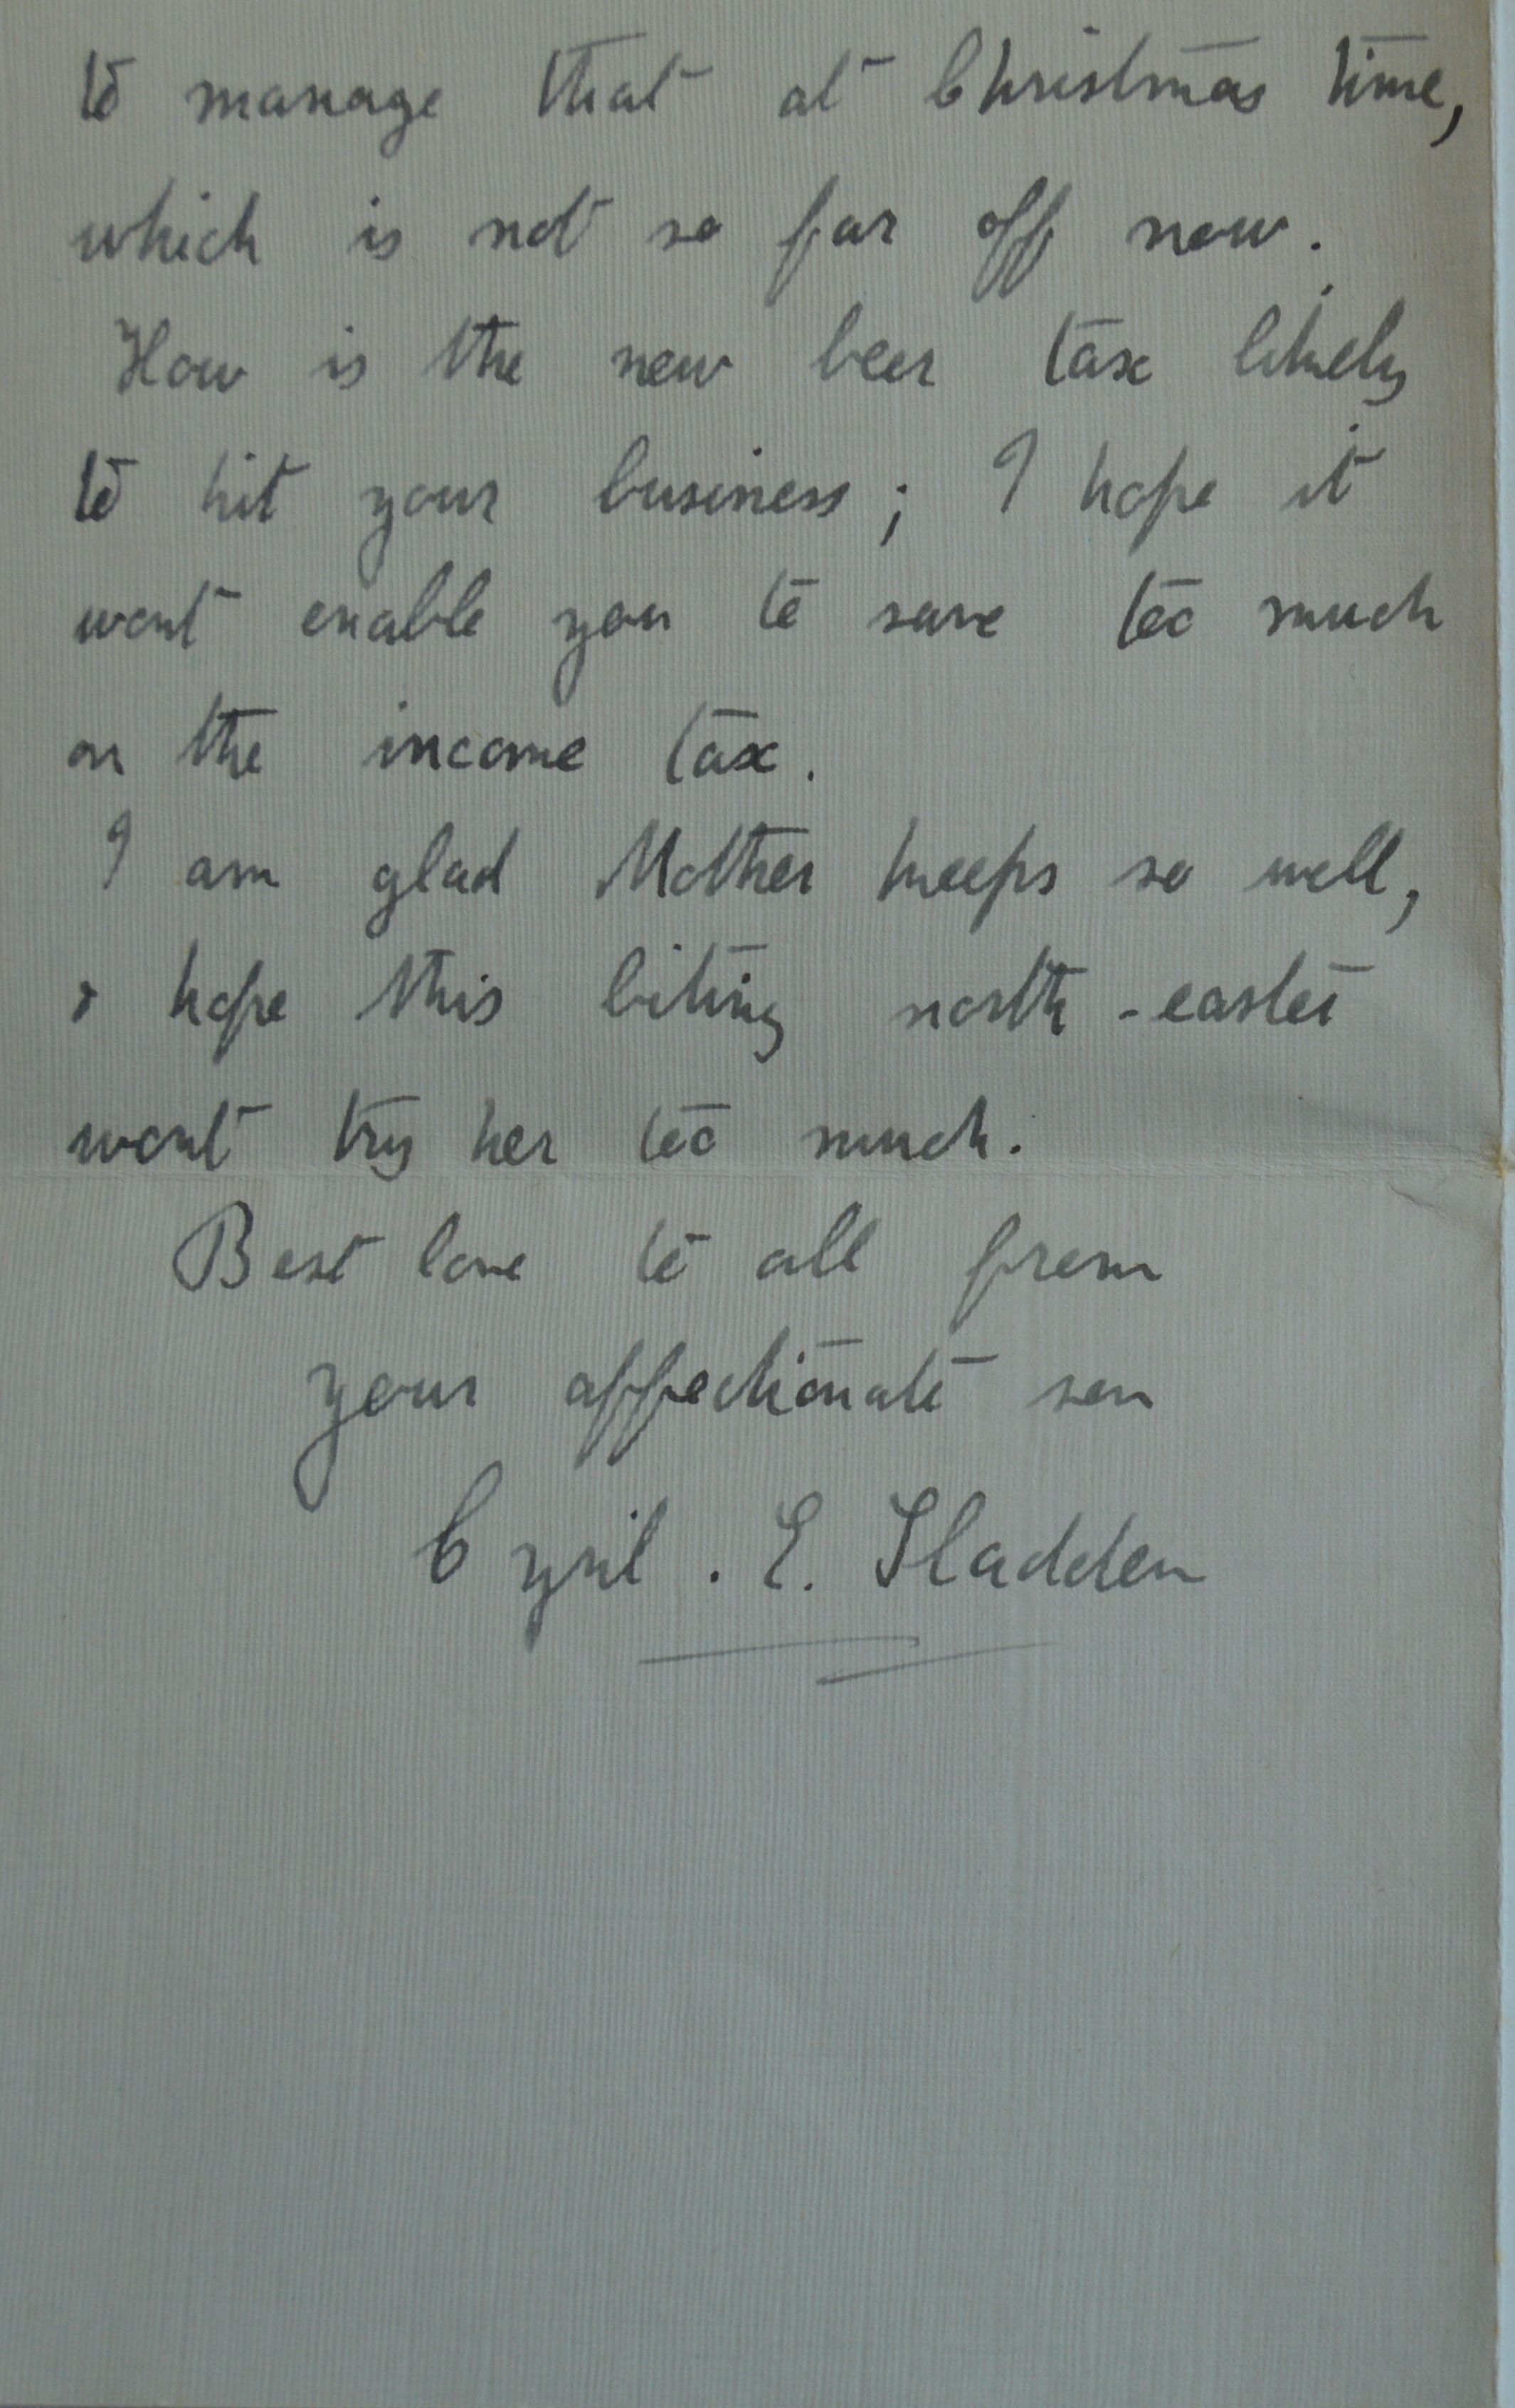 to manage that at Christmas time,
which is not so far off now.
How is the new beer tax likely
to hit your business; I hope it
wont enable you to save too much
on the income tax.
I am glad Mother keeps so well,
& hope this biting north-easter
wont try her too much.
Best love to all from
your affectionate son
Cyril. E. Sladden